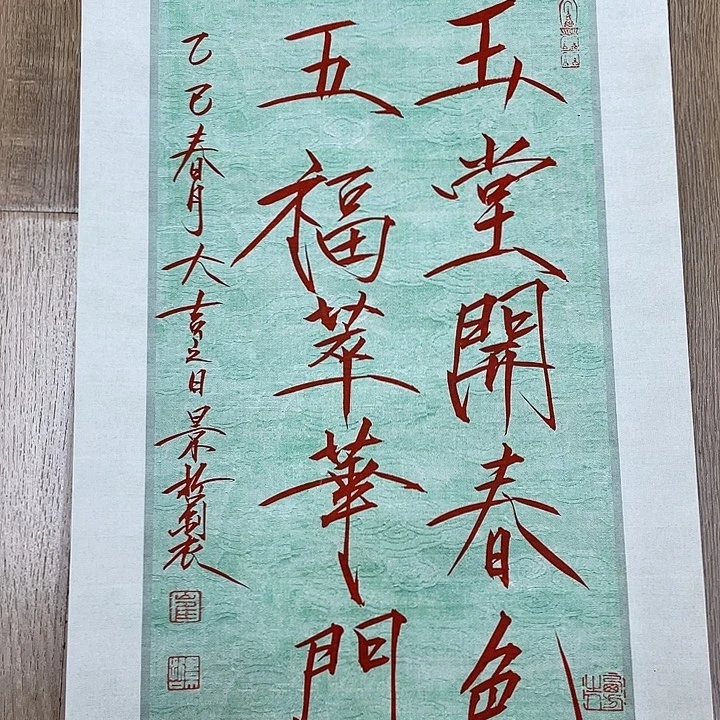 玉堂開春色
五福萃華門
乙巳春月大吉之日景松圖衣